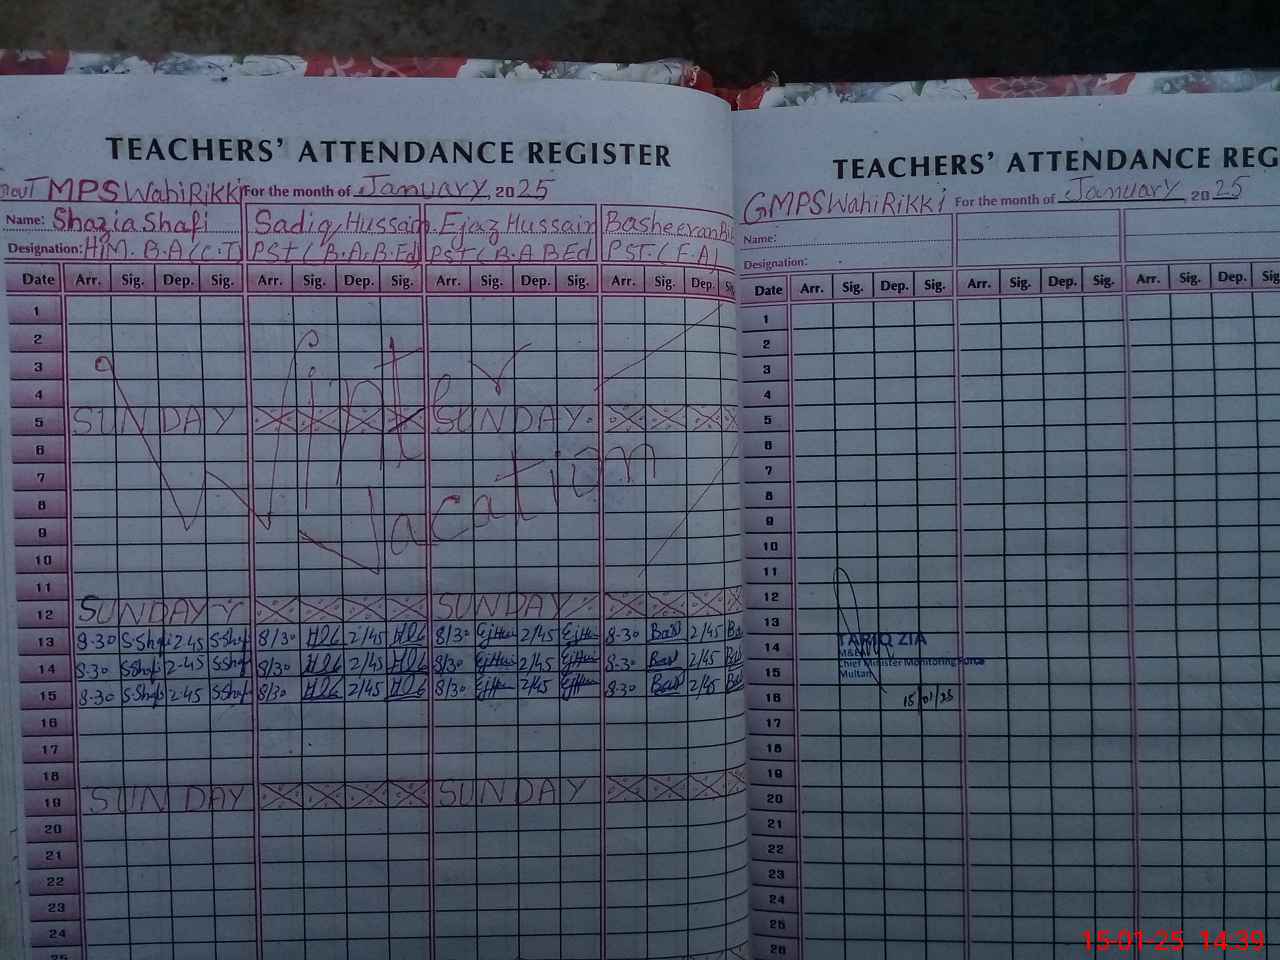 TEACHERS' ATTENDANCE REGISTER
Govt MPS Wahi Rikki For the month of January, 2025
Name: Shazia Shafi Sadiq Hussain Ejaz Hussain Basheeran Bi
Designation: H/M. B.A (C.T) PST (B.A, B.Ed) PST (B.A BEd PST. (F.A)
Date Arr. Sig. Dep. Sig. Arr. Sig. Dep. Sig. Arr. Sig. Dep. Sig. Arr. Sig. Dep. Sig
1
2
3
4
Winter
5 SUNDAY SUNDAY
6
7
Vacation
8
9
10
11
12 SUNDAY SUNDAY
13 8-30 S.Shafi 2-45 S.Shaf 8/30 2/45 8/30 2/45 8-30 2/45
14 8-30 S.Shafi 2-45 S.Shaf 8/30 2/45 8/30 2/45 8-30 2/45
15 8-30 S.Shafi 2-45 S.Shaf 8/30 2/45 8/30 2/45 8-30 2/45
16
17
18
19 SUNDAY SUNDAY
20
21
22
23
24
25
TEACHERS' ATTENDANCE REG
GMPS Wahi Rikki For the month of January, 2025
Name:
Designation:
Date Arr. Sig. Dep. Sig. Arr. Sig. Dep. Sig. Arr. Sig. Dep. Sig
1
2
3
4
5
6
7
8
9
10
11
12
13
TARIQ ZIA
14 M&EA
Chief Minister Monitoring Force
15 Multan
16 15/01/25
17
18
19
20
21
22
23
24
25
26
15-01-25 14:39